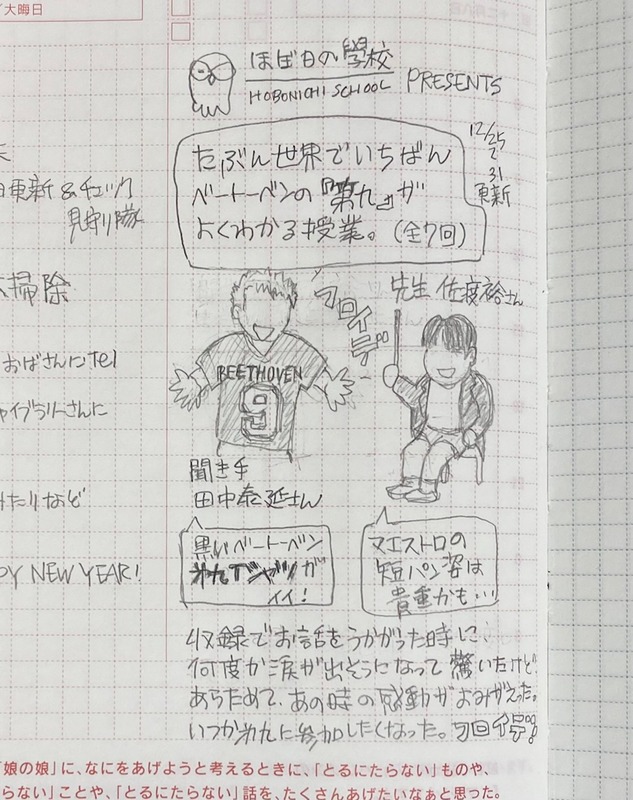 /大晦日
ほぼ日の學校
HOBONICHI SCHOOL
PRESENTS
12/25
で
31
更新
たぶん世界でいちばん
ベートーベンの『第九』が
よくわかる授業。(全7回)
更新&チェック
見守り隊
掃除
おばさんにtel
ャイブラリーさんに
みたりなど
PY NEW YEAR!
フロイデ
先生 佐渡裕さん
BEETHOVEN
9
聞き手
田中泰延さん
黒いベートーベン
第九Tシャツが
イイ!
マエストロの
短パン姿は
貴重かも…
収録でお話をうかがった時に、
何度か涙が出そうになって驚いたけど
あらためて、あの時の感動がよみがえった。
いつか第九に参加したくなった。フロイデ!!
「娘の娘」に、なにをあげようと考えるときに、「とるにたらない」ものや、
らない」ことや、「とるにたらない」話を、たくさんあげたいなぁと思った。